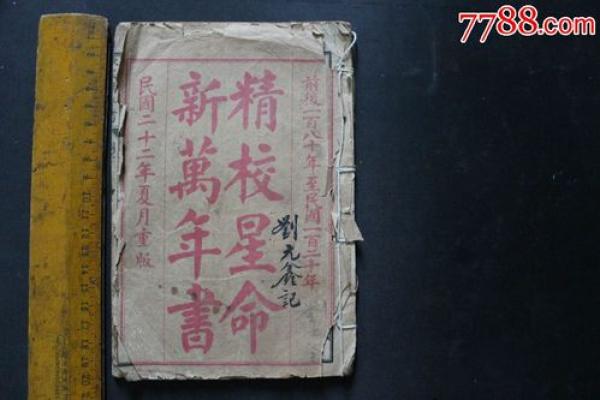 前後二百八十年至民國一百二十年
精校星命
新萬年書
民國二十二年夏月重版
劉元鑫記
7788.com